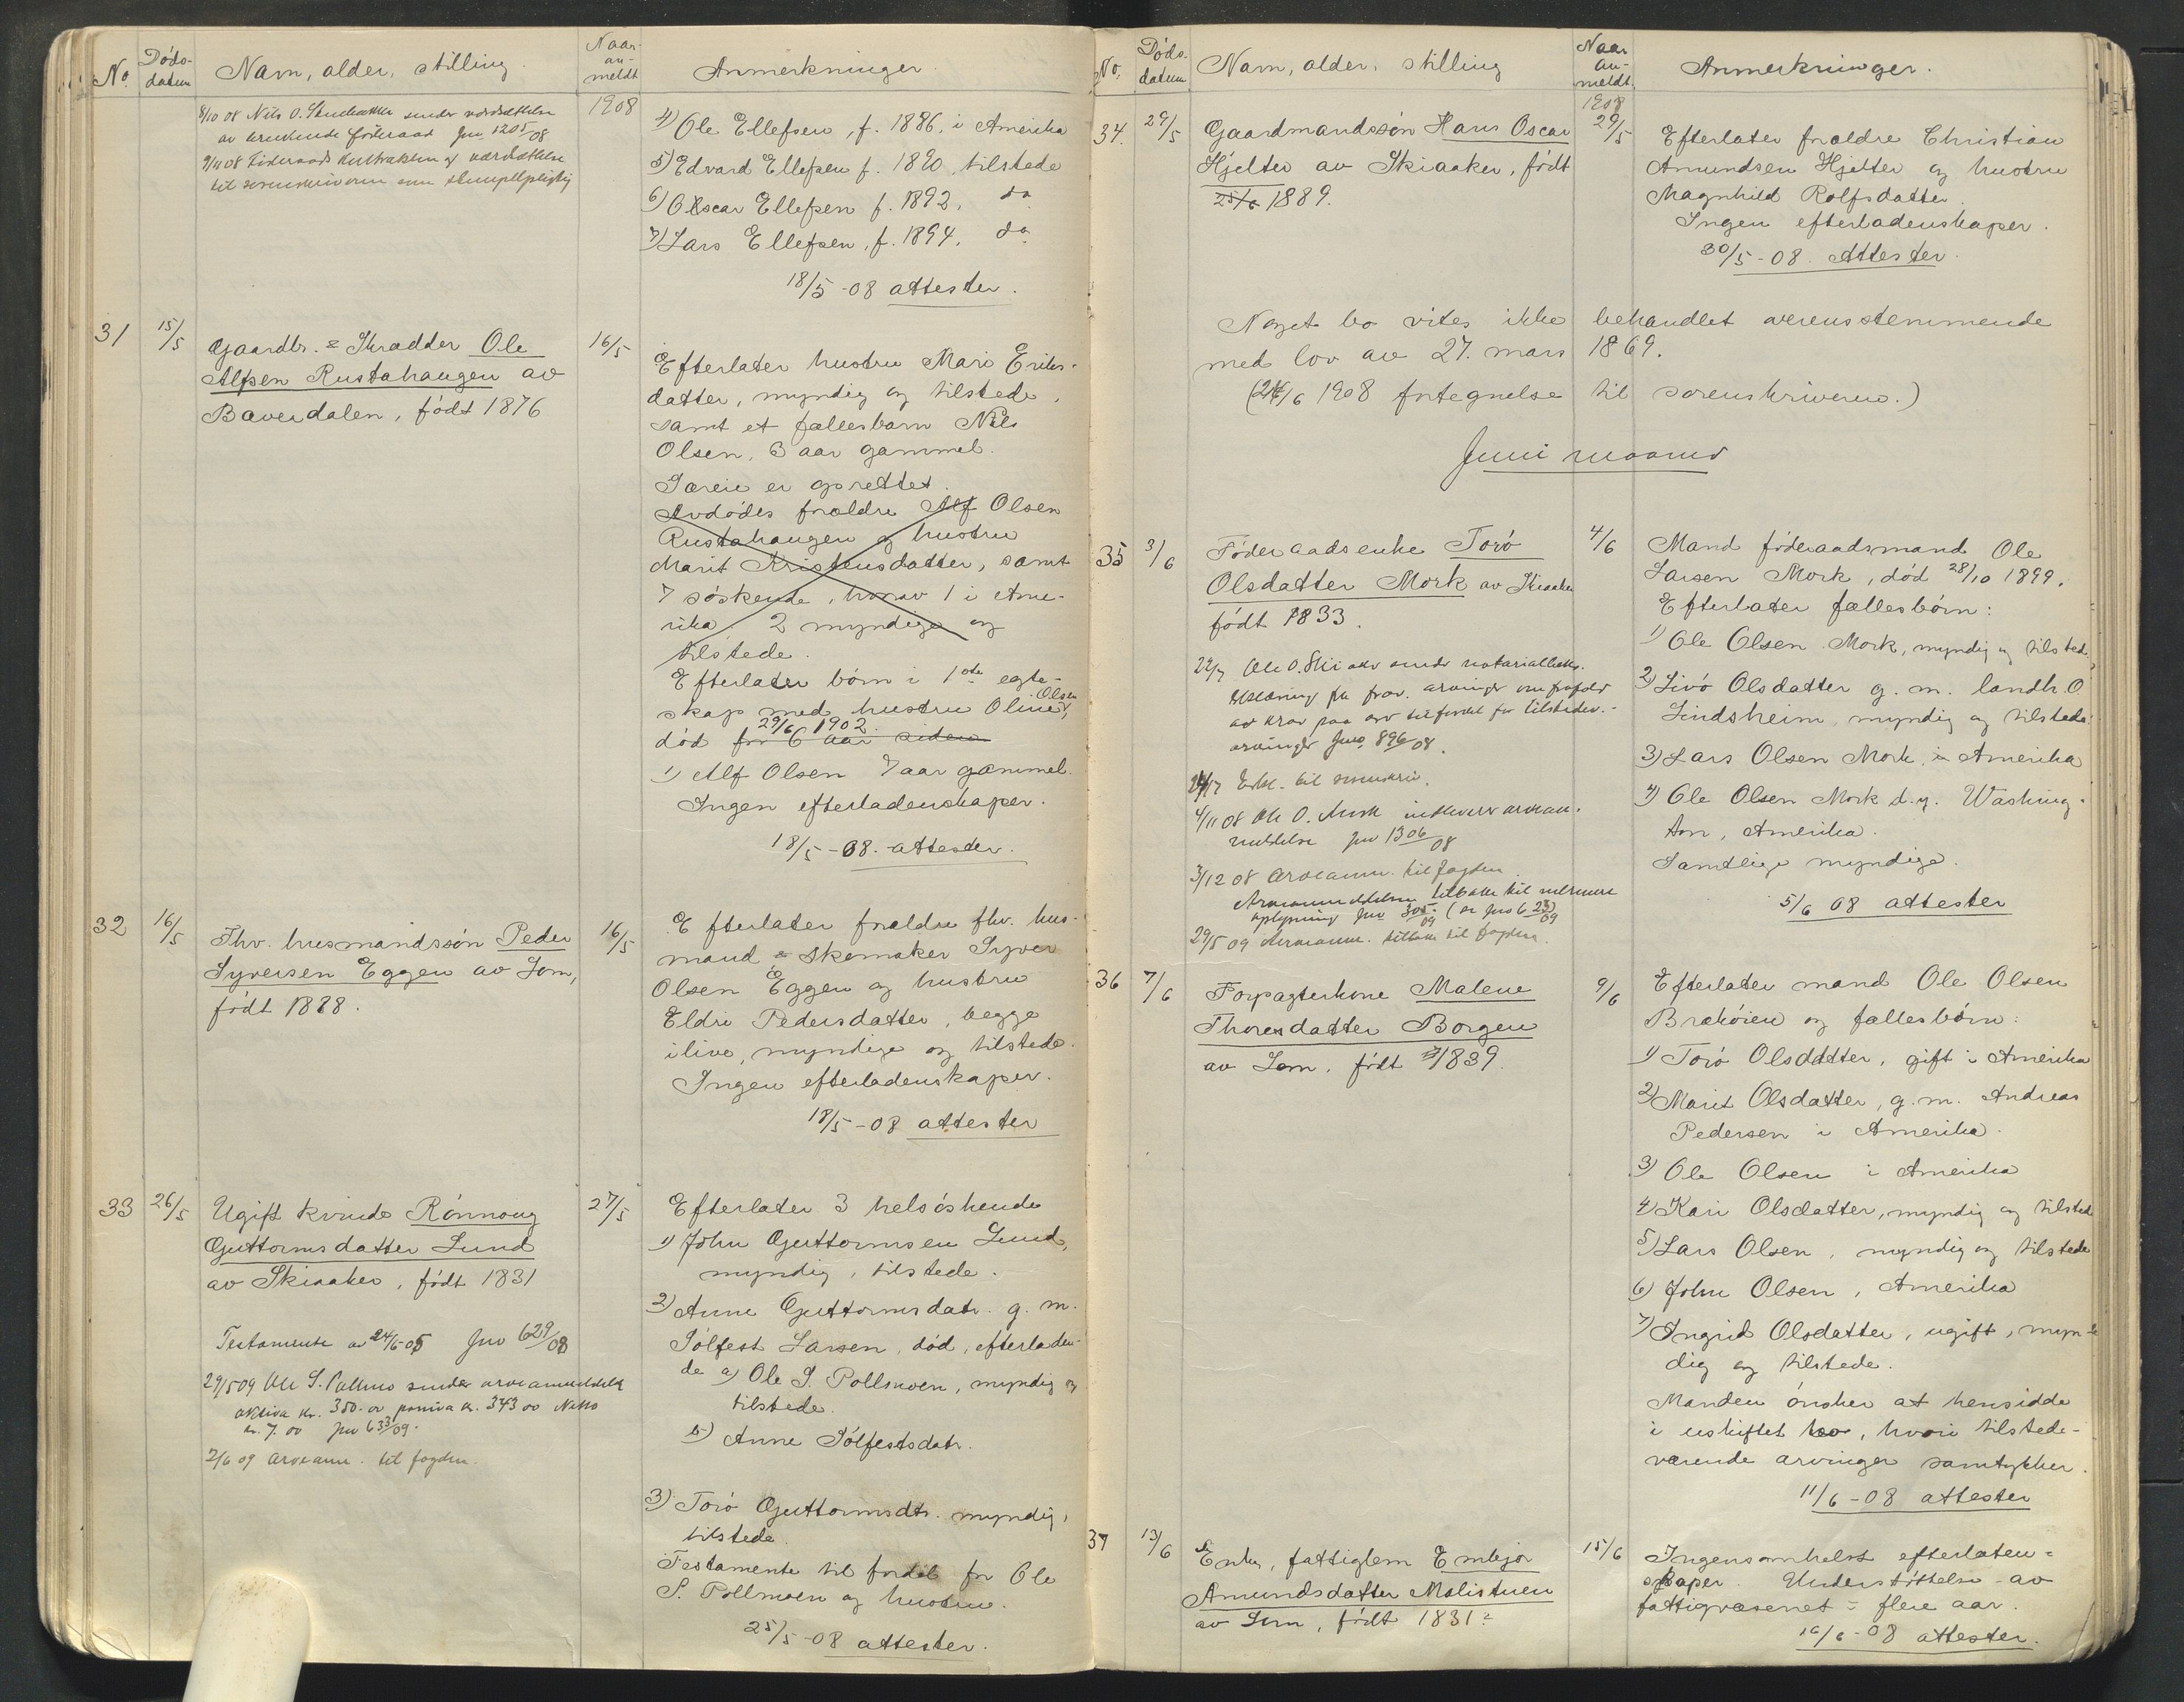 No Døds- datum Navn, alder, stilling. Naar an- meldt Anmerkninger
1908
8/10 08 Nils O. sender værdsættelse
av føderaad Jno 1201/08
9/11 08 Føderaads kontrakten og værdsættelse
til sorenskriveren
4) Ole Ellefsen, f. 1886, i Amerika
5) Edvard Ellefsen f. 1890, tilstede
6) Oscar Ellefsen f. 1892, do
7) Lars Ellefsen, f. 1894, do
18/5 -08 attester.
31 15/5
Gaardbr. & Skrædder Ole
Alfsen Rustahaugen av
Bæverdalen, født 1876
16/5
Efterlater hustru Mari Eriks-
datter, myndig og tilstede,
samt et fællesbarn Nils
Olsen, 3 aar gammel.
Særeie er oprettet.
Avdødes forældre Alf Olsen
Rustahaugen og hustru
Marit Kristensdatter, samt
7 søskende, hvorav 1 i Ame-
rika, 2 myndige og
tilstede.
Efterlater børn i 1ste egte-
skap med hustru Oline Olsen,
død for 6 aar siden 29/6 1902.
1) Alf Olsen 7 aar gammel.
Ingen efterladenskaper.
18/5 -08. attester.
32 16/5
Fhv. husmandssøn Peder
Syversen Eggen av Lom,
født 1888.
16/5
Efterlater forældre fhv. hus-
mand & skomaker Syver
Olsen Eggen og hustru
Eldri Pedersdatter, begge
ilive, myndige og tilstede.
Ingen efterladenskaper.
18/5 -08 attester
33 26/5
Ugift kvinde Rønnoug
Guttormsdatter Lund
av Skiaaker, født 1831
Testamente av 24/6-05 Jno 629/08
29/5 09 Ole S. sender arveanmeldelse
aktiva kr. 350.00 passiva kr. 343 00 Netto
kr. 7.00 Jno 633/09.
2/6 09 arveanm. til fogden.
27/5
Efterlater 3 helsøskende
1) John Guttormsen Lund,
myndig, tilstede.
2) Anne Guttormsdatr. g. m.
Sølfest Larsen, død, efterladen-
de a) Ole S. Pollmoen, myndig og
tilstede.
b) Anne Sølfestsdatr.
3) Torø Guttormsdtr. myndig,
tilstede.
Testamente til fordel for Ole
S. Pollmoen og hustru.
25/5 -08 attester.
No. Døds- datum Navn, alder, stilling Naar an- meldt. Anmerkninger.
1908
34. 29/5
Gaardmandssøn Hans Oscar
Hjelter av Skiaaker, født
25/6 1889.
29/5
Efterlater forældre Christian
Amundsen Hjelter og hustru
Magnhild Rolfsdatter.
Ingen efterladenskaper.
30/5 -08. attester.
Noget bo vites ikke behandlet overensstemmende
med lov av 27. mars 1869.
(24/6 1908 fortegnelse til sorenskriveren.)
Juni maaned
35 3/6
Føderaadsenke Torø
Olsdatter Mork av Skiaaker
født 1833.
22/7 Ole O. sender
erklæring fra arvinger om frafald
av krav paa arv til fordel for tilstedev.
arvinger Jno 896/08.
24/7 Erkl. til
4/11 08 Ole O. Mork arvean-
meldelse Jno 1306/08
3/12 08 arveanm. til fogden.
Arveanmeldelsen tilbake til nærmere
oplysning Jno 305/09. (se Jno 623/09)
29/5 09 Arveanm. tilbake til fogden.
4/6
Mand føderaadsmand Ole
Larsen Mork, død 28/10 1899.
Efterlater fællesbørn:
1) Ole Olsen Mork, myndig og tilstede,
2) Livø Olsdatter g. m. landh. O.
Lindsheim myndig og tilstede.
3) Lars Olsen Mork, i Amerika
4) Ole Olsen Mork d. y. Washing-
ton, Amerika.
Samtlige myndige.
5/6 08 attester
36 7/6
Forpagterkone Malene
Thoresdatter Borgen
av Lom, født 1839.
9/6
Efterlater mand Ole Olsen
Brækøien og fællesbørn:
1) Torø Olsdatter, gift i Amerika
2) Marit Olsdatter, g. m. Andreas
Pedersen i Amerika.
3) Ole Olsen i Amerika
4) Kari Olsdatter, myndig og tilstede
5) Lars Olsen, myndig og tilstede
6) John Olsen, Amerika
7) Ingrid Olsdatter, ugift, myn-
dig og tilstede.
Manden ønsker at hensidde
i uskiftet bo, hvori tilstede-
værende arvinger samtykker.
11/6 -08 attester
37 13/6
Enke, fattiglem Embjør
Amundsdatter Molistuen
av Lom, født 1831.
15/6
Ingensomhelst efterlaten-
skaper. Understøttelse av
fattigvæsenet i flere aar.
16/6 -08 attester.